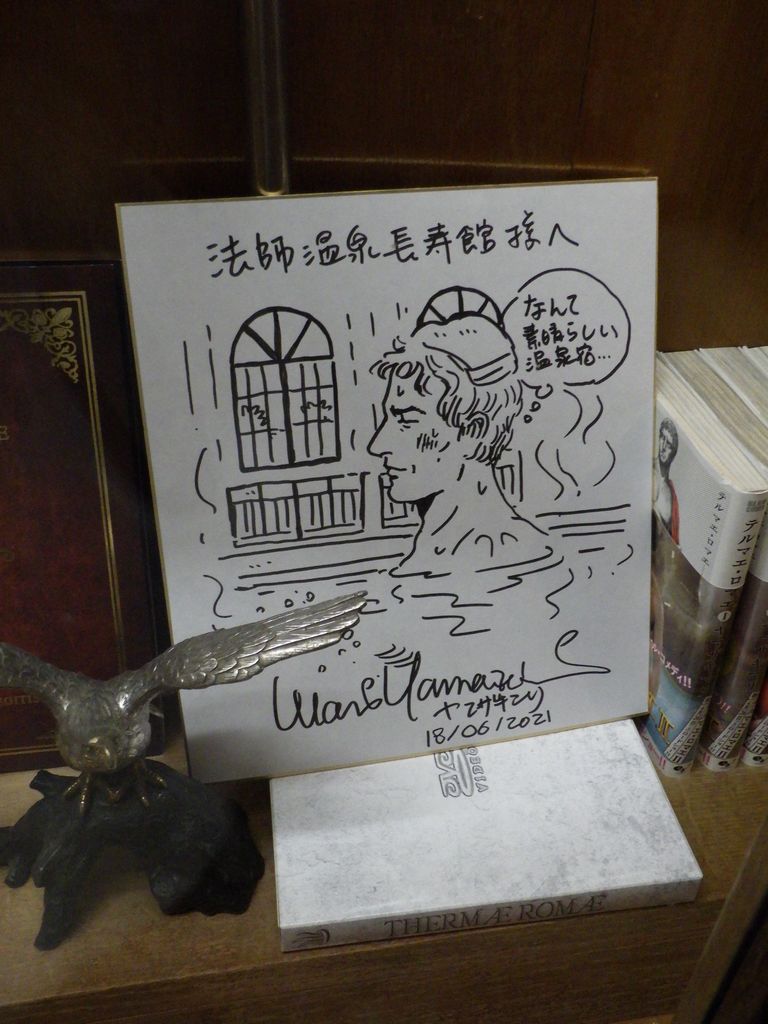 法師温泉長寿館様へ
なんて
素晴らしい
温泉宿…
Mari Yamazaki
ヤマザキマリ
18/06/2021
テルマエ・ロマエ I
THERMÆ ROMÆ